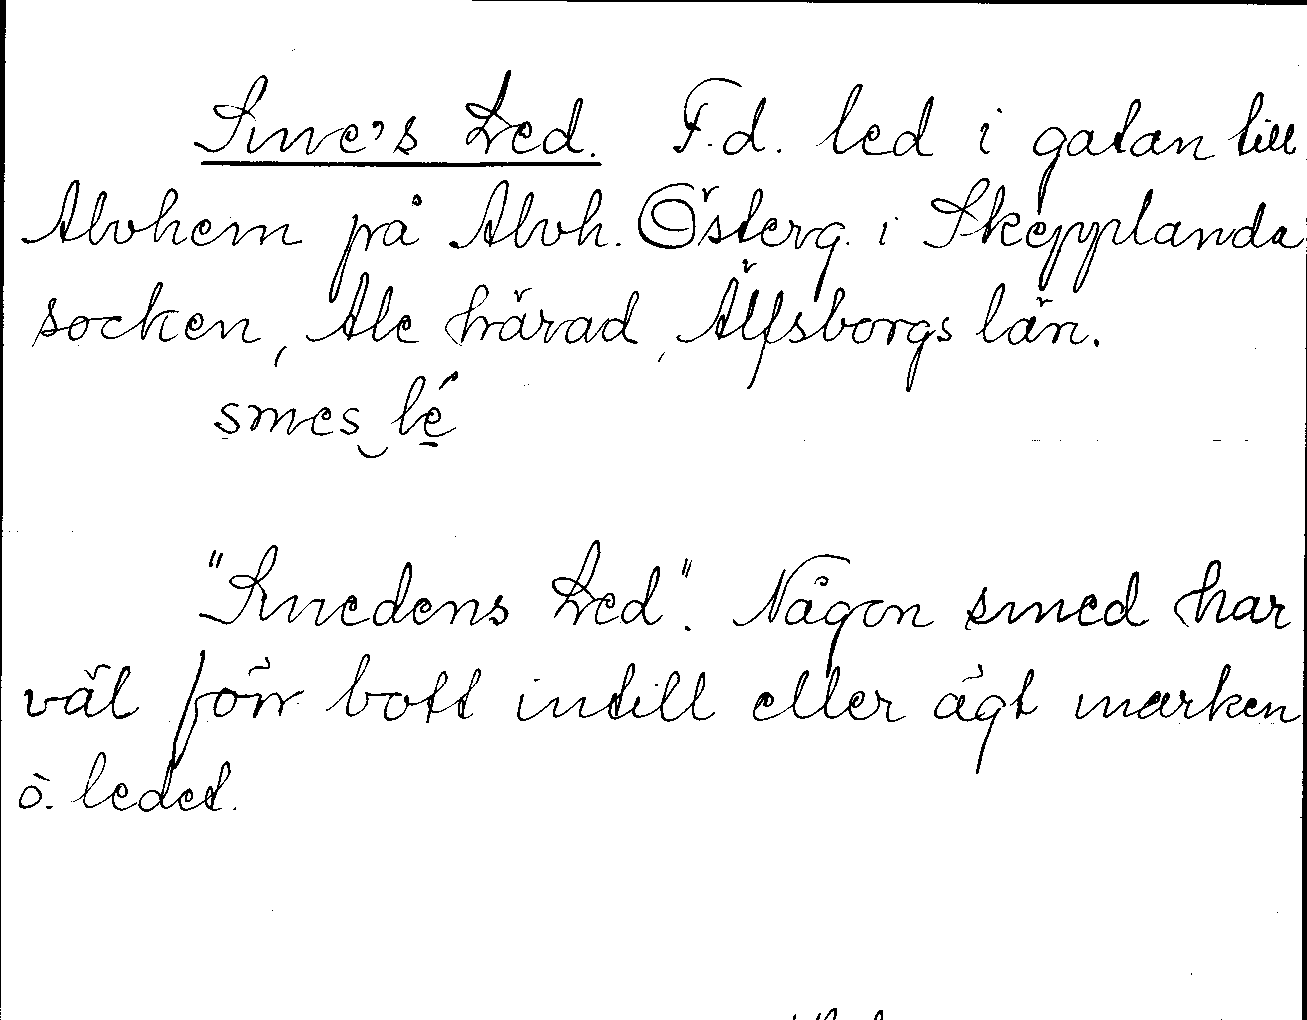 Sme's Led. F.d. led i gatan till
Alvhem på Alvh. Österg. i Skepplanda
socken, Ale härad, Älfsborgs län.
smes lé
"Smedens Led". Någon smed har
väl förr bott intill eller ägt marken
ö. ledet.